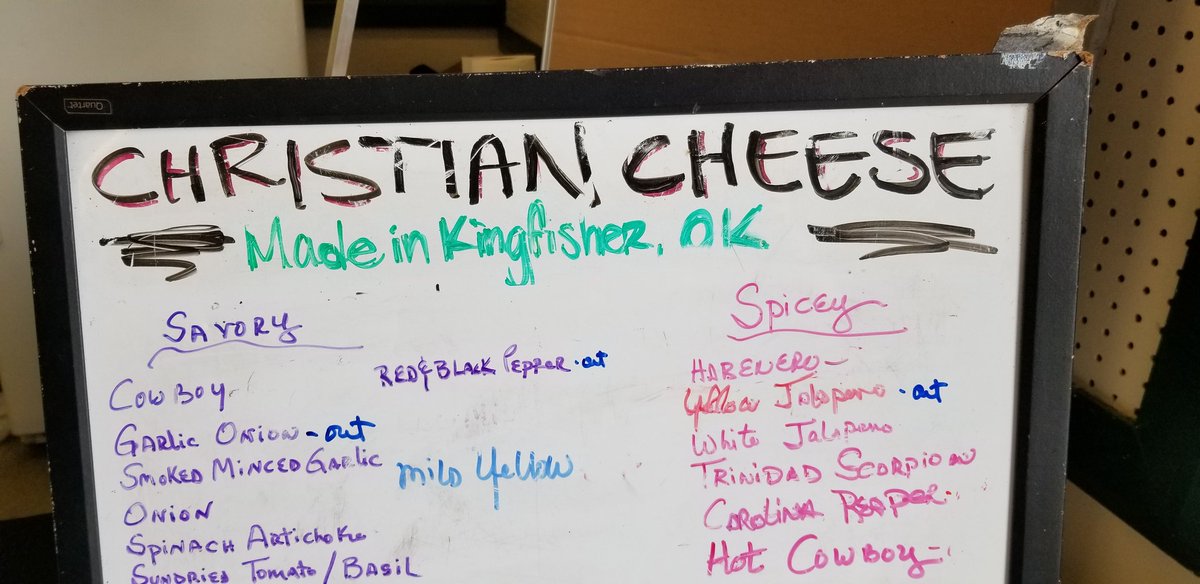 Quartet
CHRISTIAN CHEESE
Made in Kingfisher, OK
SAVORY
COWBOY
GARLIC ONION - out
SMOKED MINCED GARLIC
ONION
SPINACH ARTICHOKE
SUNDRIED TOMATO / BASIL
RED & BLACK PEPPER · out
Mild Yellow
SPICEY
HABENERO -
Yellow Jalapeno · out
White Jalapeno
TRINIDAD SCORPION
CAROLINA REAPER -
HOT COWBOY -